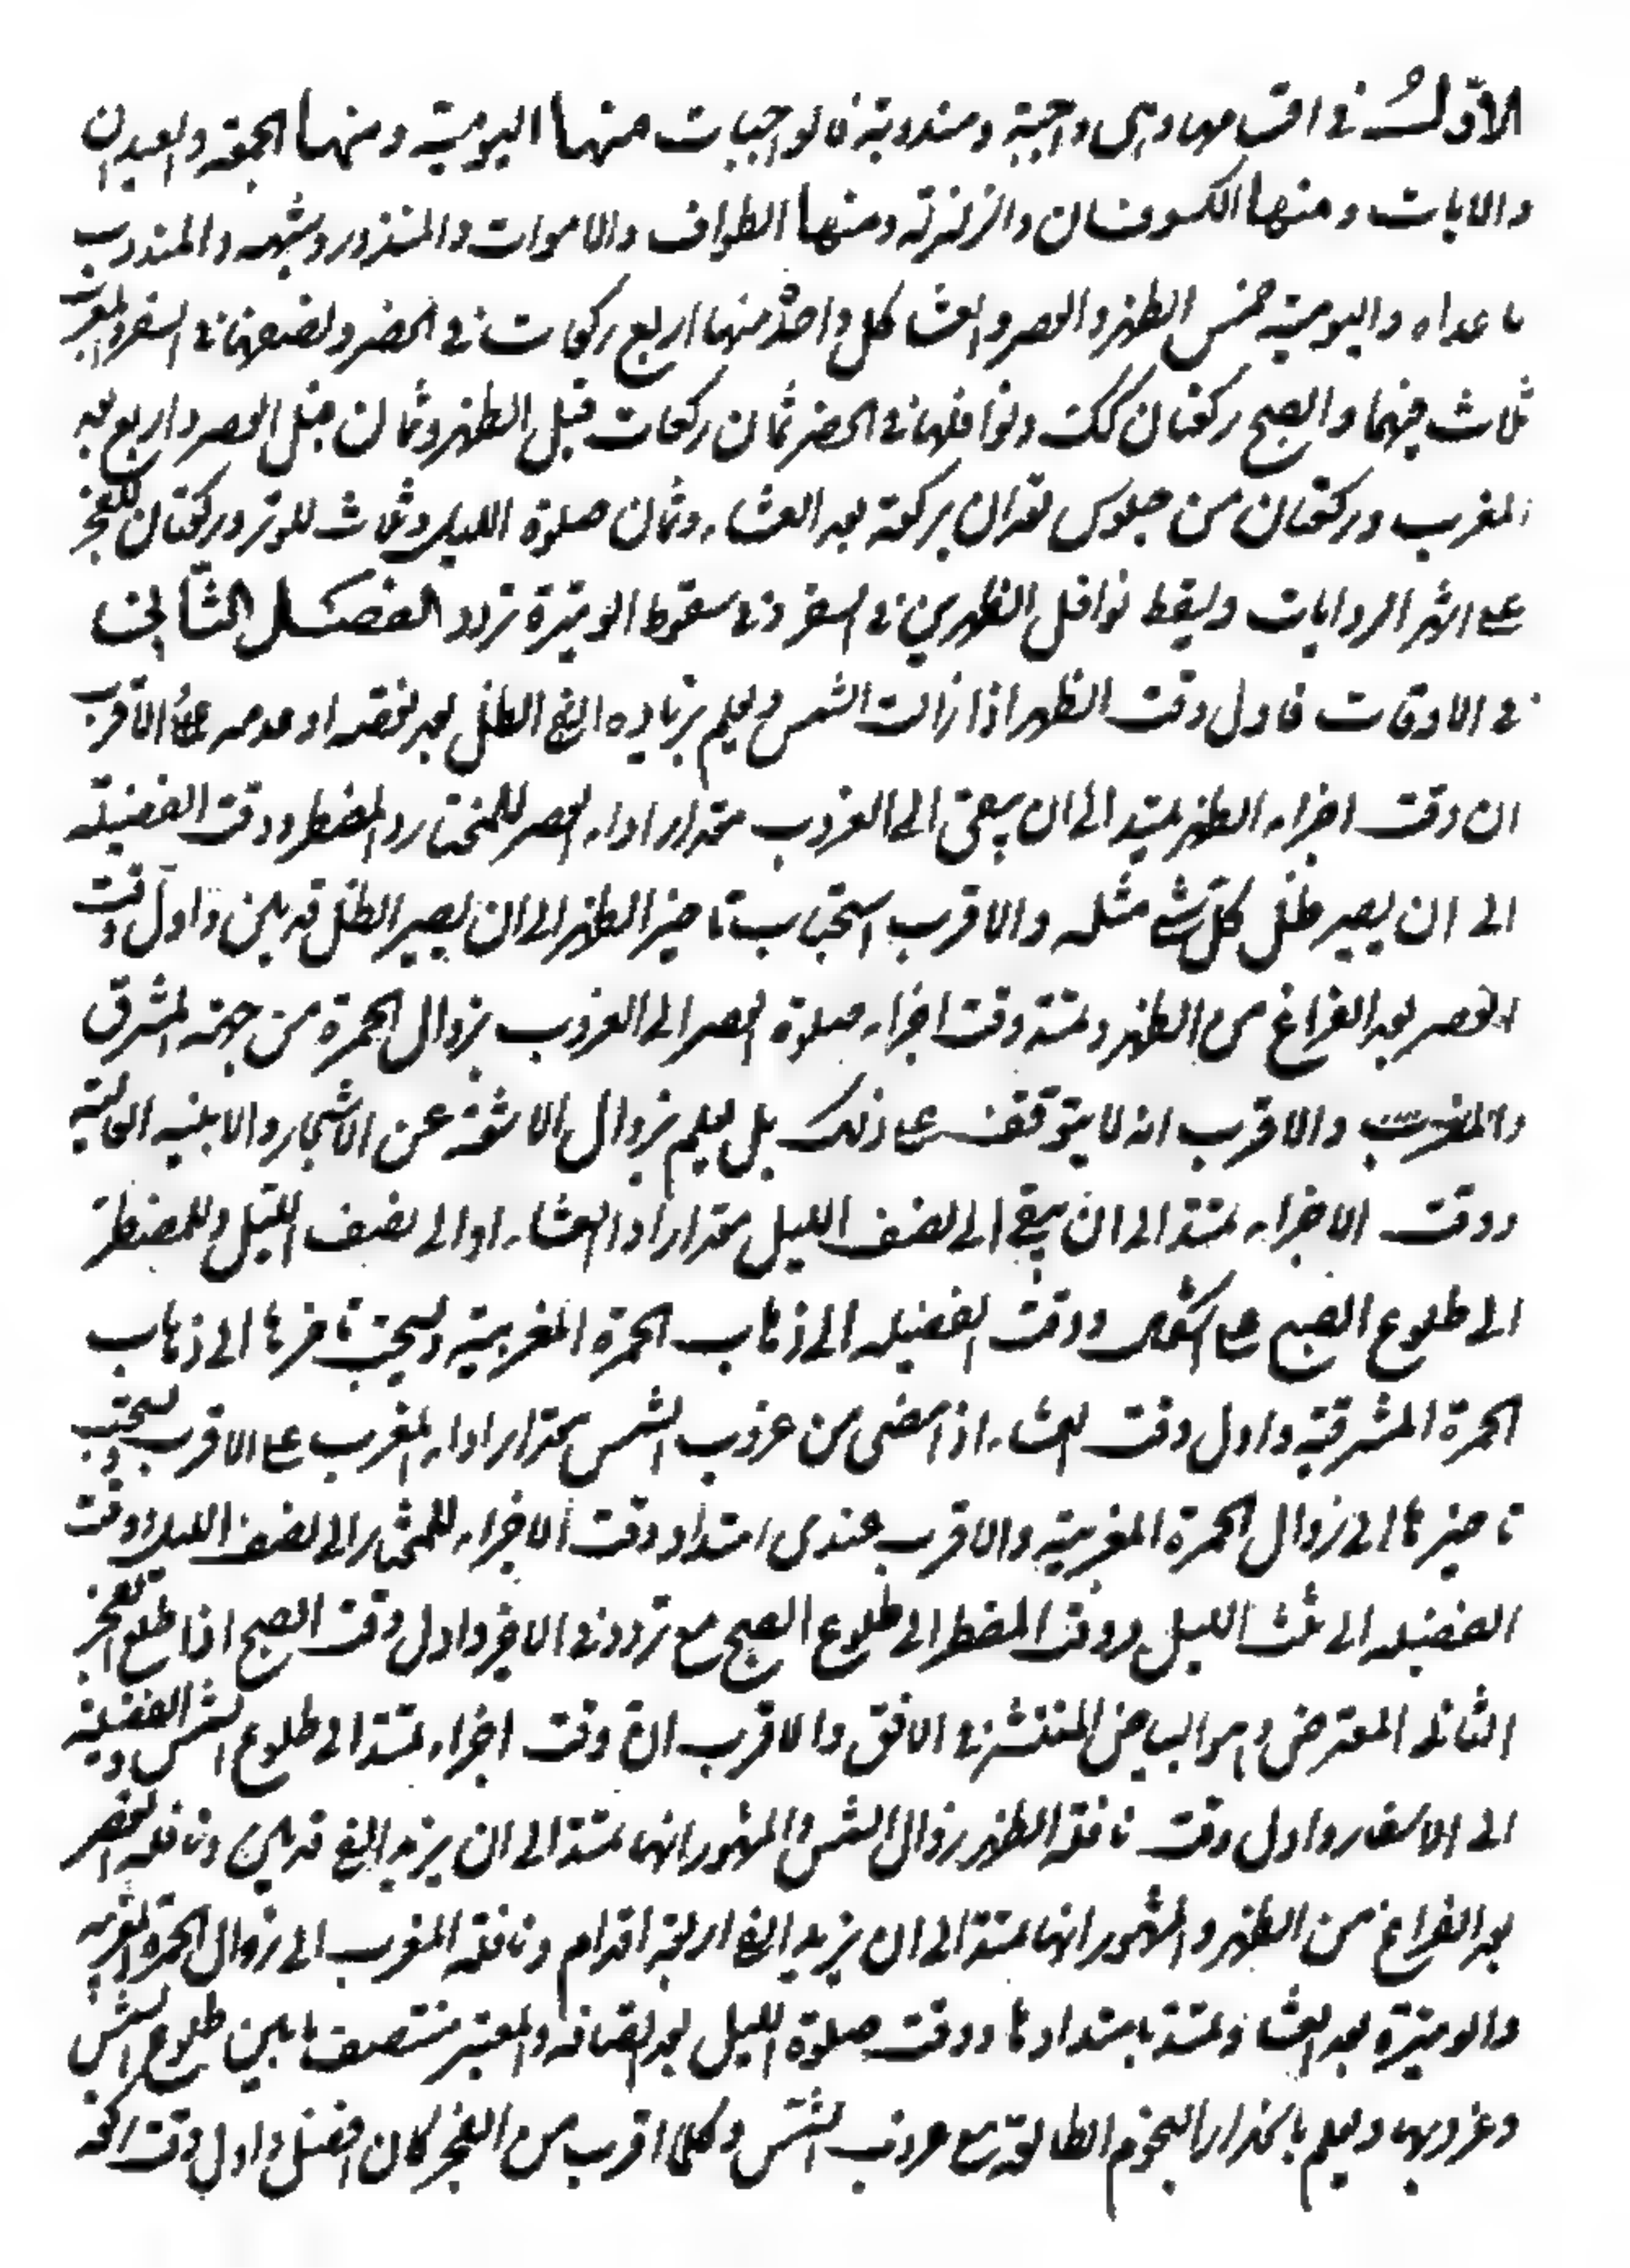 الاوّل في اقسامها وهي واجبة ومندوبة فالواجبات منها اليومية ومنها الجمعة والعيدان
والايات ومنها الكسوفان والزلزلة ومنها الطواف والاموات والمنذور وشبهه والمندوب
ما عداه واليومية خمس الظهر والعصر والعشا كل واحدة منها اربع ركعات في الحضر ونصفها في السفر والمغرب
ثلاث فيهما والصبح ركعتان كك ونوافلها في الحضر ثمان ركعات قبل الظهر وثمان قبل العصر واربع بعد
المغرب وركعتان من جلوس تعدان بركعة بعد العشاء وثمان صلوة الليل وثلاث للوتر وركعتان للفجر
على اشهر الروايات ويسقط نوافل الظهرين في السفر وفي سقوط الوتيرة تردد الفصل الثاني
في الاوقات فاول وقت الظهر اذا زالت الشمس ويعلم بزياده الفئ الظل بعد نقصه او عدمه على الاقرب
ان وقت اجزاء الظهر يمتد الى ان يبقى الى الغروب مقدار اداء العصر للمختار والمضطر ووقت الفضيلة
الى ان يصير ظل كل شئ مثله والاقرب استحباب تاخير الظهر الى ان يصير الظل قدمين واول وقت
العصر بعد الفراغ من الظهر ويمتد وقت اجزاء صلوة العصر الى الغروب بزوال الحمرة من جهة المشرق
والمغرب والاقرب انه لا يتوقف على ذلك بل يعلم بزوال الاشعة عن الاشجار والابنيه العالية
ووقت الاجزاء يمتد الى ان يبقى الى نصف الليل مقدار اداء العشاء او الى نصف الليل وللمضطر
الى طلوع الصبح على اشكال ووقت الفضيله الى ذهاب الحمرة المغربية ويستحب تاخرها الى ذهاب
الحمرة المشرقية واول وقت العشاء اذا مضى من غروب الشمس مقدار اداء المغرب على الاقرب ويستحب
تاخيرها الى زوال الحمرة المغربية والاقرب عندي امتداد وقت الاجزاء للمختار الى نصف الليل ووقت
الفضيله الى ثلث الليل ووقت المضطر الى طلوع الصبح مع تردد في الاخير واول وقت الصبح اذا طلع الفجر
الثاني المعترض وهو البياض المنتشر في الافق والاقرب ان وقت اجزاء يمتد الى طلوع الشمس والفضيلة
الى الاسفار واول وقت نافلة الظهر زوال الشمس والمشهور انها تمتد الى ان يزيد الفئ قدمين ونافله العصر
بعد الفراغ من الظهر والمشهور انها تمتد الى ان يزيد الفئ اربعة اقدام ونافلة المغرب الى زوال الحمرة المغربيه
والوتيرة بعد العشا وتمتد بامتدادها ووقت صلوة الليل بعد انتصافه والمعتبر منتصف ما بين طلوع الشمس
وغروبها ويعلم بانحدار النجوم الطالعة مع غروب الشمس وكلما اقرب من الفجر كان افضل واول وقت ركعة